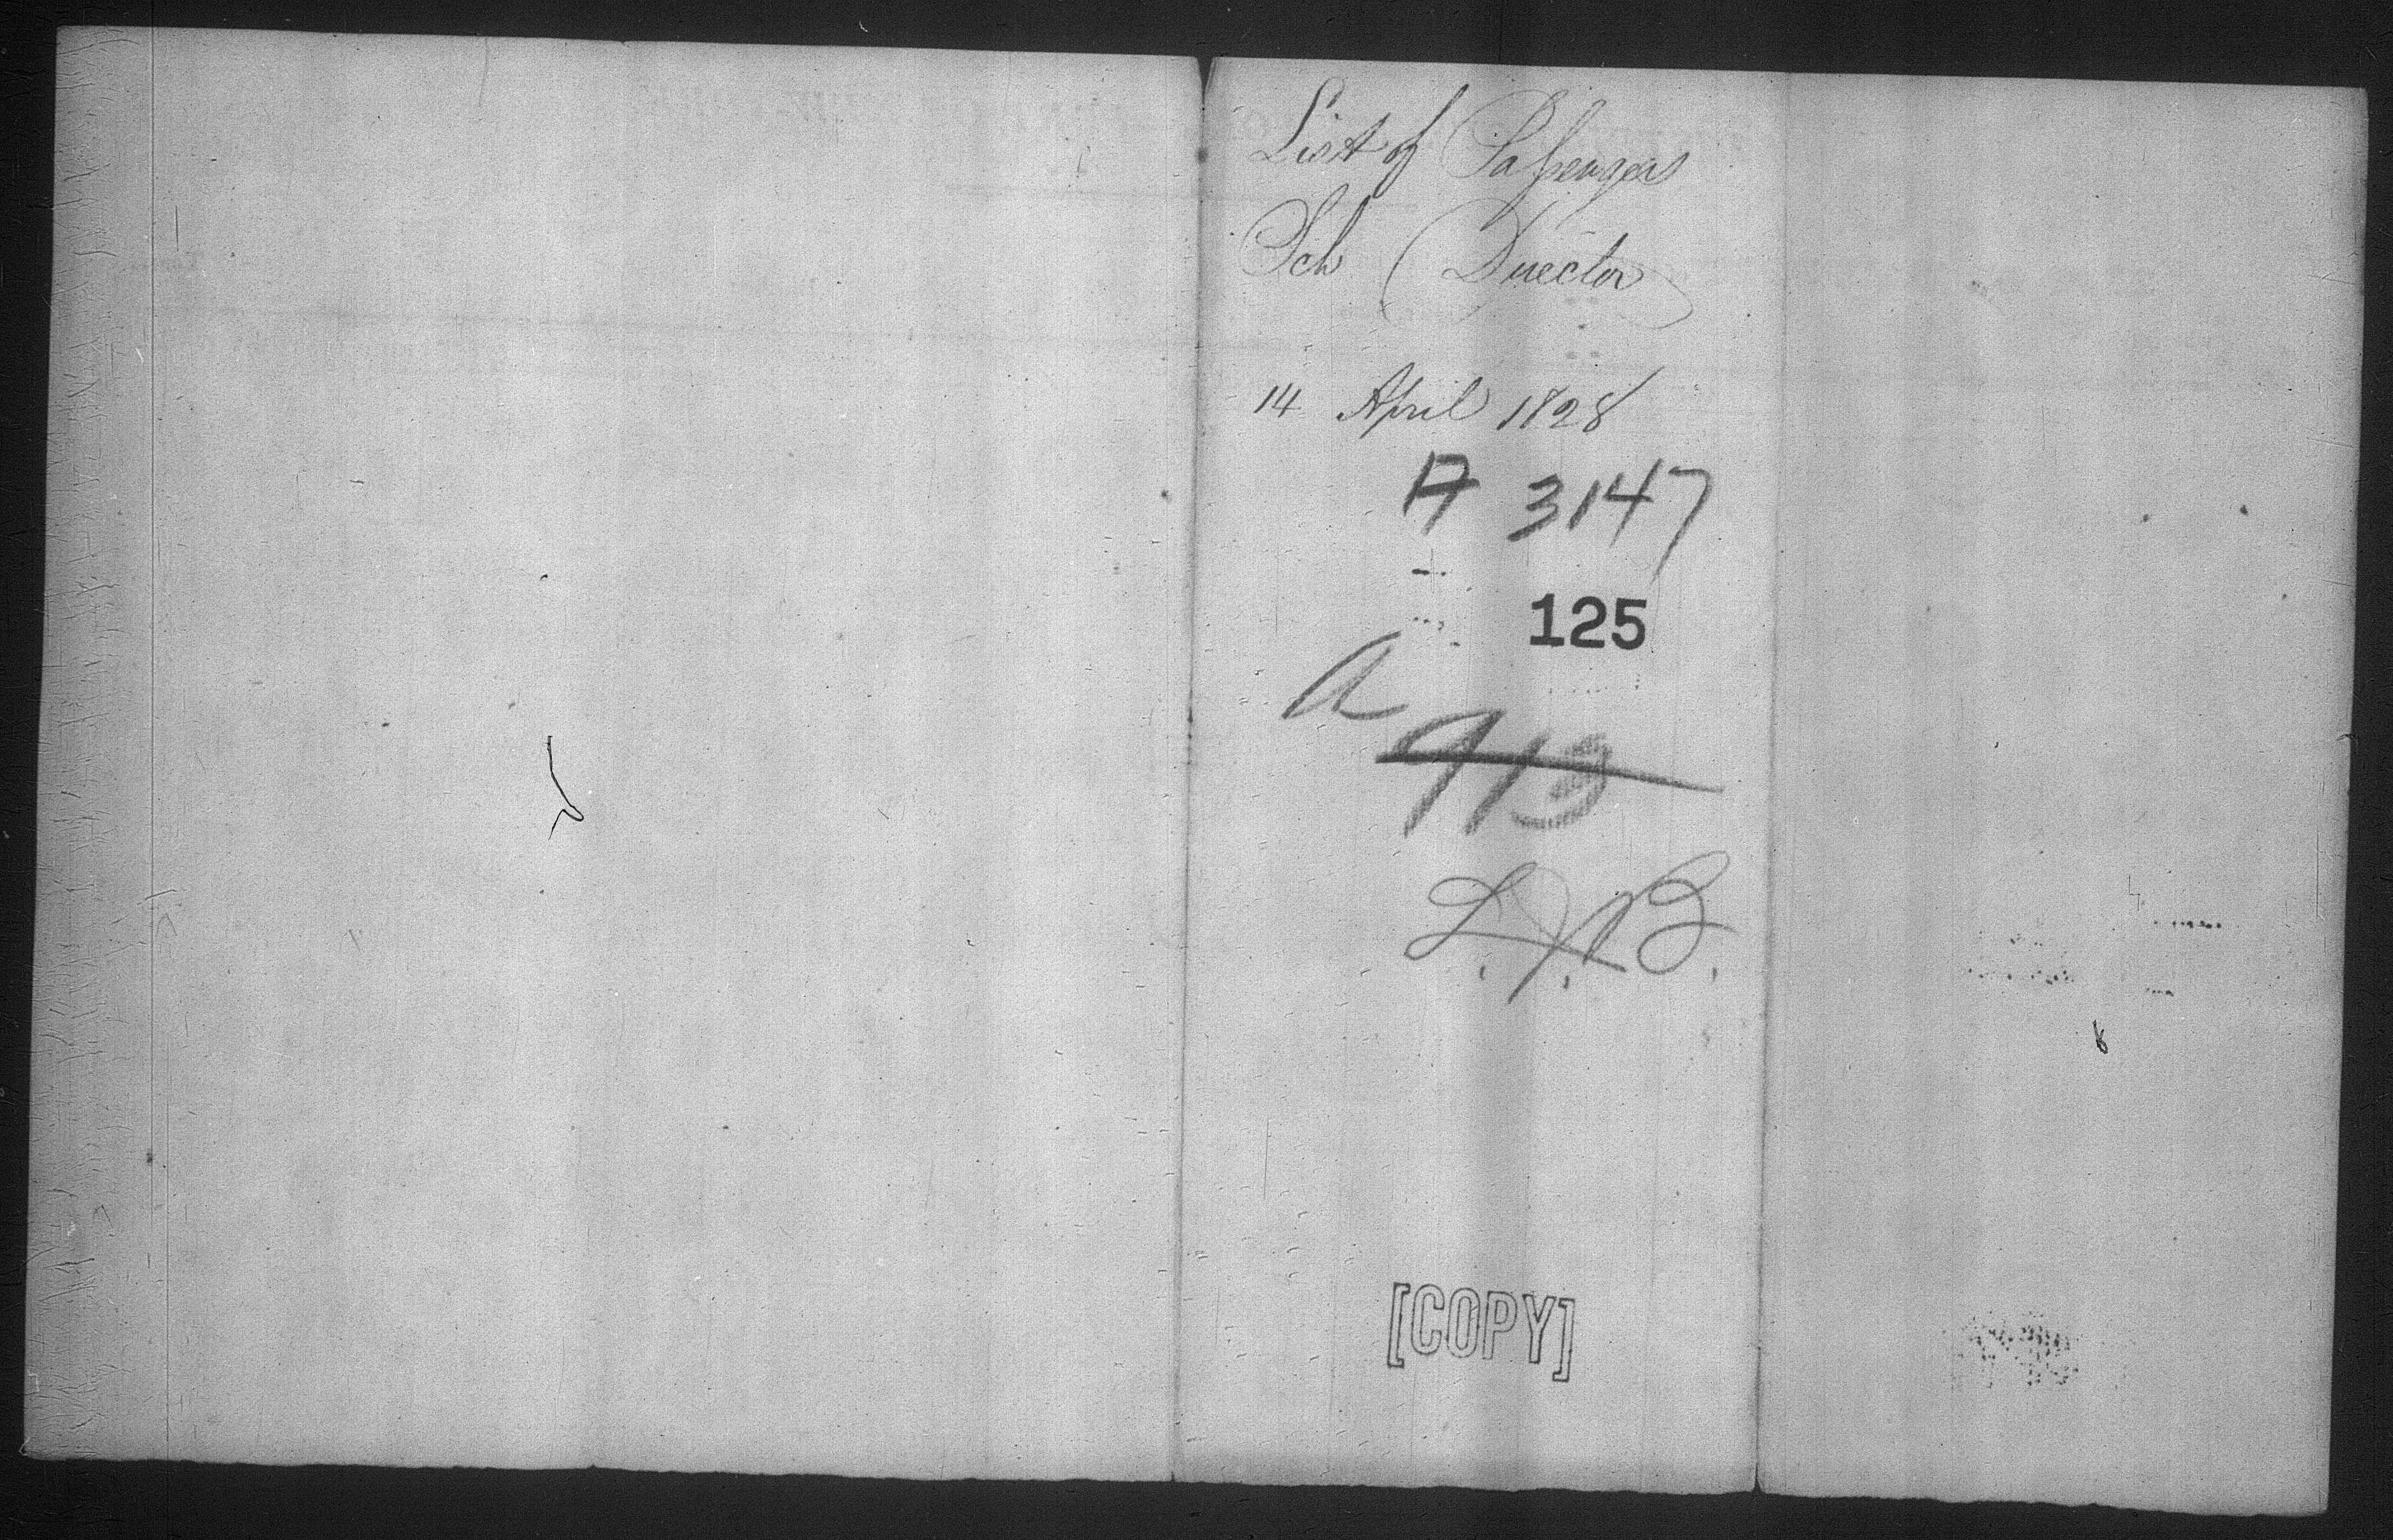 List of Passengers
Sch Director
14 April 1828
A 3147
125
a
913
L.J.B.
[COPY]